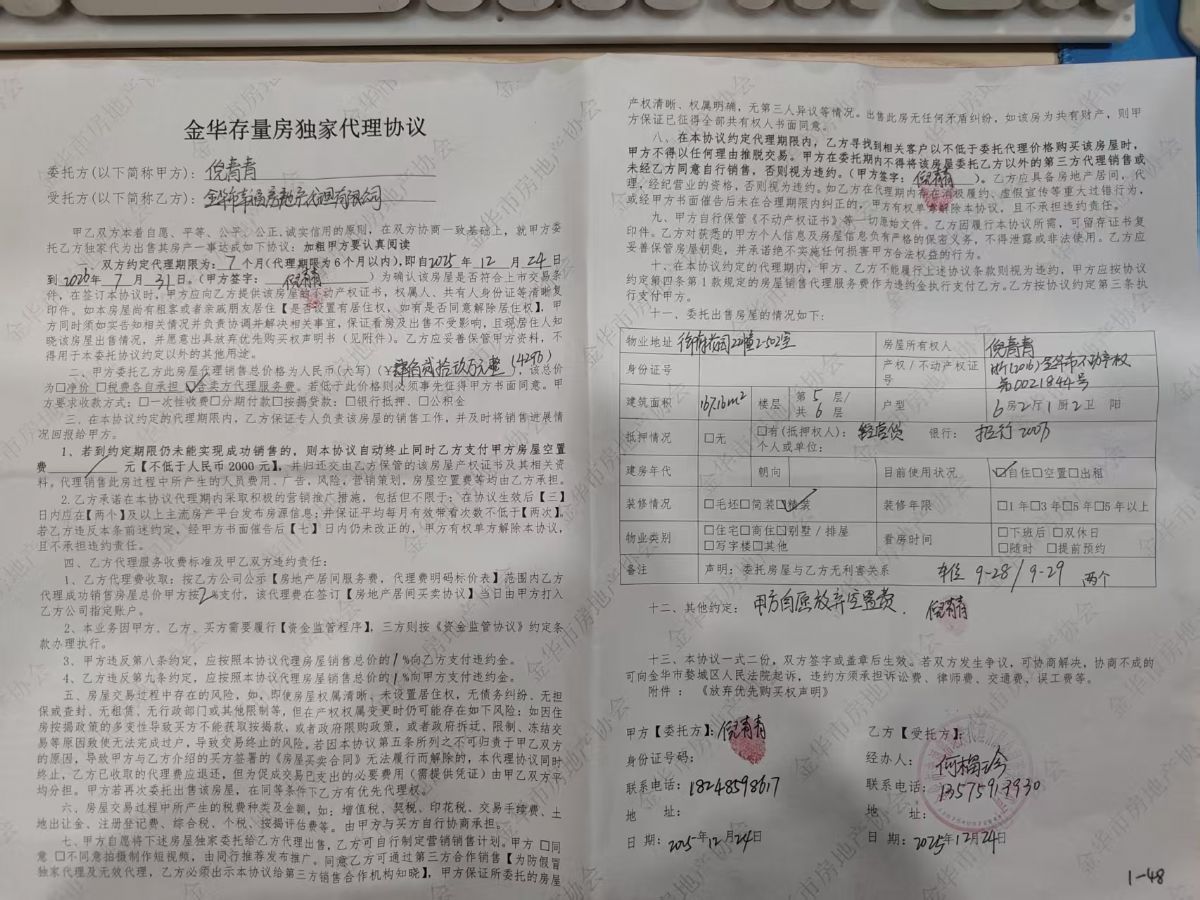 金华存量房独家代理协议
委托方(以下简称甲方): 倪青青
受托方(以下简称乙方): 金华市
甲乙双方本着自愿、平等、公平、公正、诚实信用的原则，在双方协商一致基础上，就甲方委
托乙方独家代为出售其房产一事达成如下协议：加粗甲方要认真阅读
一、双方约定代理期限为：7个月(代理期限为6个月以内),即自2025年12月24日
到2026年7月31日。(甲方签字：倪青青)为确认该房屋是否符合上市交易条
件，在签订本协议时，甲方应向乙方提供该房屋的不动产权证书，权属人、共有人身份证等清晰复
印件。如本房屋尚有租客或者亲戚朋友居住【是否设置有居住权，如有是否同意解除居住权】，甲
方同时须如实告知相关情况并负责协调并解决相关事宜，保证看房及出售不受影响，且现居住人知
晓该房屋出售情况，并愿意出具放弃优先购买权声明书（见附件）。乙方应妥善保管甲方资料，不
得用于本委托协议约定以外的其他用途。
二、甲方委托乙方此房屋代理销售总价格为人民币(大写) (¥肆佰贰拾玖万元整(429万)该总价
为□净价 □税费各自承担 ☑含卖方代理服务费。若低于此价格则必须事先征得甲方书面同意。甲
方要求收款方式：□一次性收费□分期付款□按揭贷款：□银行抵押、□公积金
三、在本协议约定的代理期限内，乙方保证专人负责该房屋的销售工作，并及时将销售进展情
况回报给甲方。
1、若到约定期限仍未能实现成功销售的，则本协议自动终止同时乙方支付甲方房屋空置
费 / 元【不低于人民币2000元】，并归还交由乙方保管的该房屋产权证书及其相关资
料。代理销售此房过程中所产生的人员费用、广告、风险，营销策划，房屋空置费等均由乙方承担。
2.乙方承诺在本协议代理期内采取积极的营销推广措施，包括但不限于：在协议生效后【三】
日内应在【两个】及以上主流房产平台发布房源信息；并保证平均每月有效带看次数不低于【两次】，
若乙方违反本条前述约定，经甲方书面催告后【七】日内仍未改正的，甲方有权单方解除本协议，
且不承担违约责任。
四、乙方代理服务收费标准及甲乙双方违约责任：
1、乙方代理费收取：按乙方公司公示【房地产居间服务费，代理费明码标价表】范围内乙方
代理成功销售房屋总价甲方按2%支付，该代理费在签订【房地产居间买卖协议】当日由甲方打入
乙方公司指定账户。
2、本业务因甲方、乙方、买方需要履行【资金监管程序】，三方则按《资金监管协议》约定条
款办理执行。
3、甲方违反第八条约定，应按照本协议代理房屋销售总价的1%向乙方支付违约金。
4、乙方违反第九条约定，应按照本协议代理房屋销售总价的1%向甲方支付违约金。
五、房屋交易过程中存在的风险，如，即使房屋权属清晰、未设置居住权，无债务纠纷、无担
保或查封、无租赁、无行政部门或其他限制等，但在产权权属变更时仍可能存在如下风险：如因住
房按揭政策的多变性导致买方不能获取按揭款，或者政府限购政策，或者政府拆迁、限制、冻结交
易等原因致使无法完成过户，导致交易终止的风险。若因本协议第五条所列之不可归责于甲乙双方
的原因，导致甲方与乙方介绍的买方签署的《房屋买卖合同》无法履行而解除的，本代理协议同时
终止，乙方已收取的代理费应退还，但为促成交易已支出的必要费用（需提供凭证）由甲乙双方平
均分担。甲方若再次委托出售该房屋，在同等条件下乙方有优先代理权。
六、房屋交易过程中所产生的税费种类及金额，如：增值税、契税、印花税、交易手续费、土
地出让金、注册登记费、综合税，个税、按揭评估费等。由甲方与买方自行协商承担。
七、甲方自愿将下述房屋独家委托给乙方代理出售，乙方可自行制定营销销售计划。甲方 □同
意 □不同意拍摄制作短视频，由同行推荐发布推广。同意乙方可通过第三方合作销售【为防假冒
独家代理及无效代理，乙方必须出示本协议给第三方销售合作机构知晓】，甲方保证所委托的房屋
产权清晰、权属明确，无第三人异议等情况。出售此房无任何矛盾纠纷，如该房为共有财产，则甲
方保证已征得全部共有权人书面同意。
八、在本协议约定代理期限内，乙方寻找到相关客户以不低于委托代理价格购买该房屋时，
甲方不得以任何理由推脱交易。甲方在委托期内不得将该房屋委托乙方以外的第三方代理销售或
未经乙方同意自行销售，否则视为违约。(甲方签字：倪青青)。乙方应具备房地产居间，代
理，经纪营业的资格，否则视为违约。如乙方在代理期内存在消极履约、虚假宣传等重大过错行为，
或经甲方书面催告后未在合理期限内纠正的，甲方有权单方解除本协议，且不承担违约责任。
九、甲方自行保管《不动产权证书》等一切原始文件。乙方因履行本协议所需，可留存证书复
印件。乙方对获悉的甲方个人信息及房屋信息负有严格的保密义务，不得泄露或非法使用。乙方应
妥善保管房屋钥匙，并承诺绝不实施任何损害甲方合法权益的行为。
十、在协议约定的代理期内，甲方、乙方不能履行上述协议条款则视为违约，甲方应按协议
约定第四条第1款规定的房屋销售代理服务费作为违约金执行支付乙方。乙方按协议约定第三条执
行支付甲方。
十一、委托出售房屋的情况如下：
物业地址 22幢2-502室 房屋所有权人 倪青青
身份证号 产权/不动产权证号 浙(2016)金华市不动产权第0021844号
建筑面积 167.16m² 楼层 第5层/共6层 户型 6房2厅1厨2卫 阳
抵押情况 □无 □有(抵押权人): 个人或单位: 银行: 招行200万
建房年代 朝向 目前使用状况 ☑自住□空置□出租
装修情况 □毛坯□简装☑精装 装修年限 □1年□3年□5年□5年以上
物业类别 □住宅□商住□别墅/排屋 □写字楼□其他 看房时间 □下班后 □双休日 □随时 □提前预约
备注 声明：委托房屋与乙方无利害关系 车位 9-28/9-29 两个
十二、其他约定：甲方自愿放弃空置费. 倪青青
十三、本协议一式二份，双方签字或盖章后生效。若双方发生争议，可协商解决，协商不成的
可向金华市婺城区人民法院起诉，违约方须承担诉讼费、律师费、交通费，误工费等。
附件：《放弃优先购买权声明》
甲方【委托方】: 倪青青 乙方【受托方】:
身份证号码: 经办人: 何梅珍
联系电话: 18248598617 联系电话: 13575913930
地 址: 地 址:
日 期: 2025年12月24日 日 期: 2025年12月24日
1-48
金华市房地产业协会